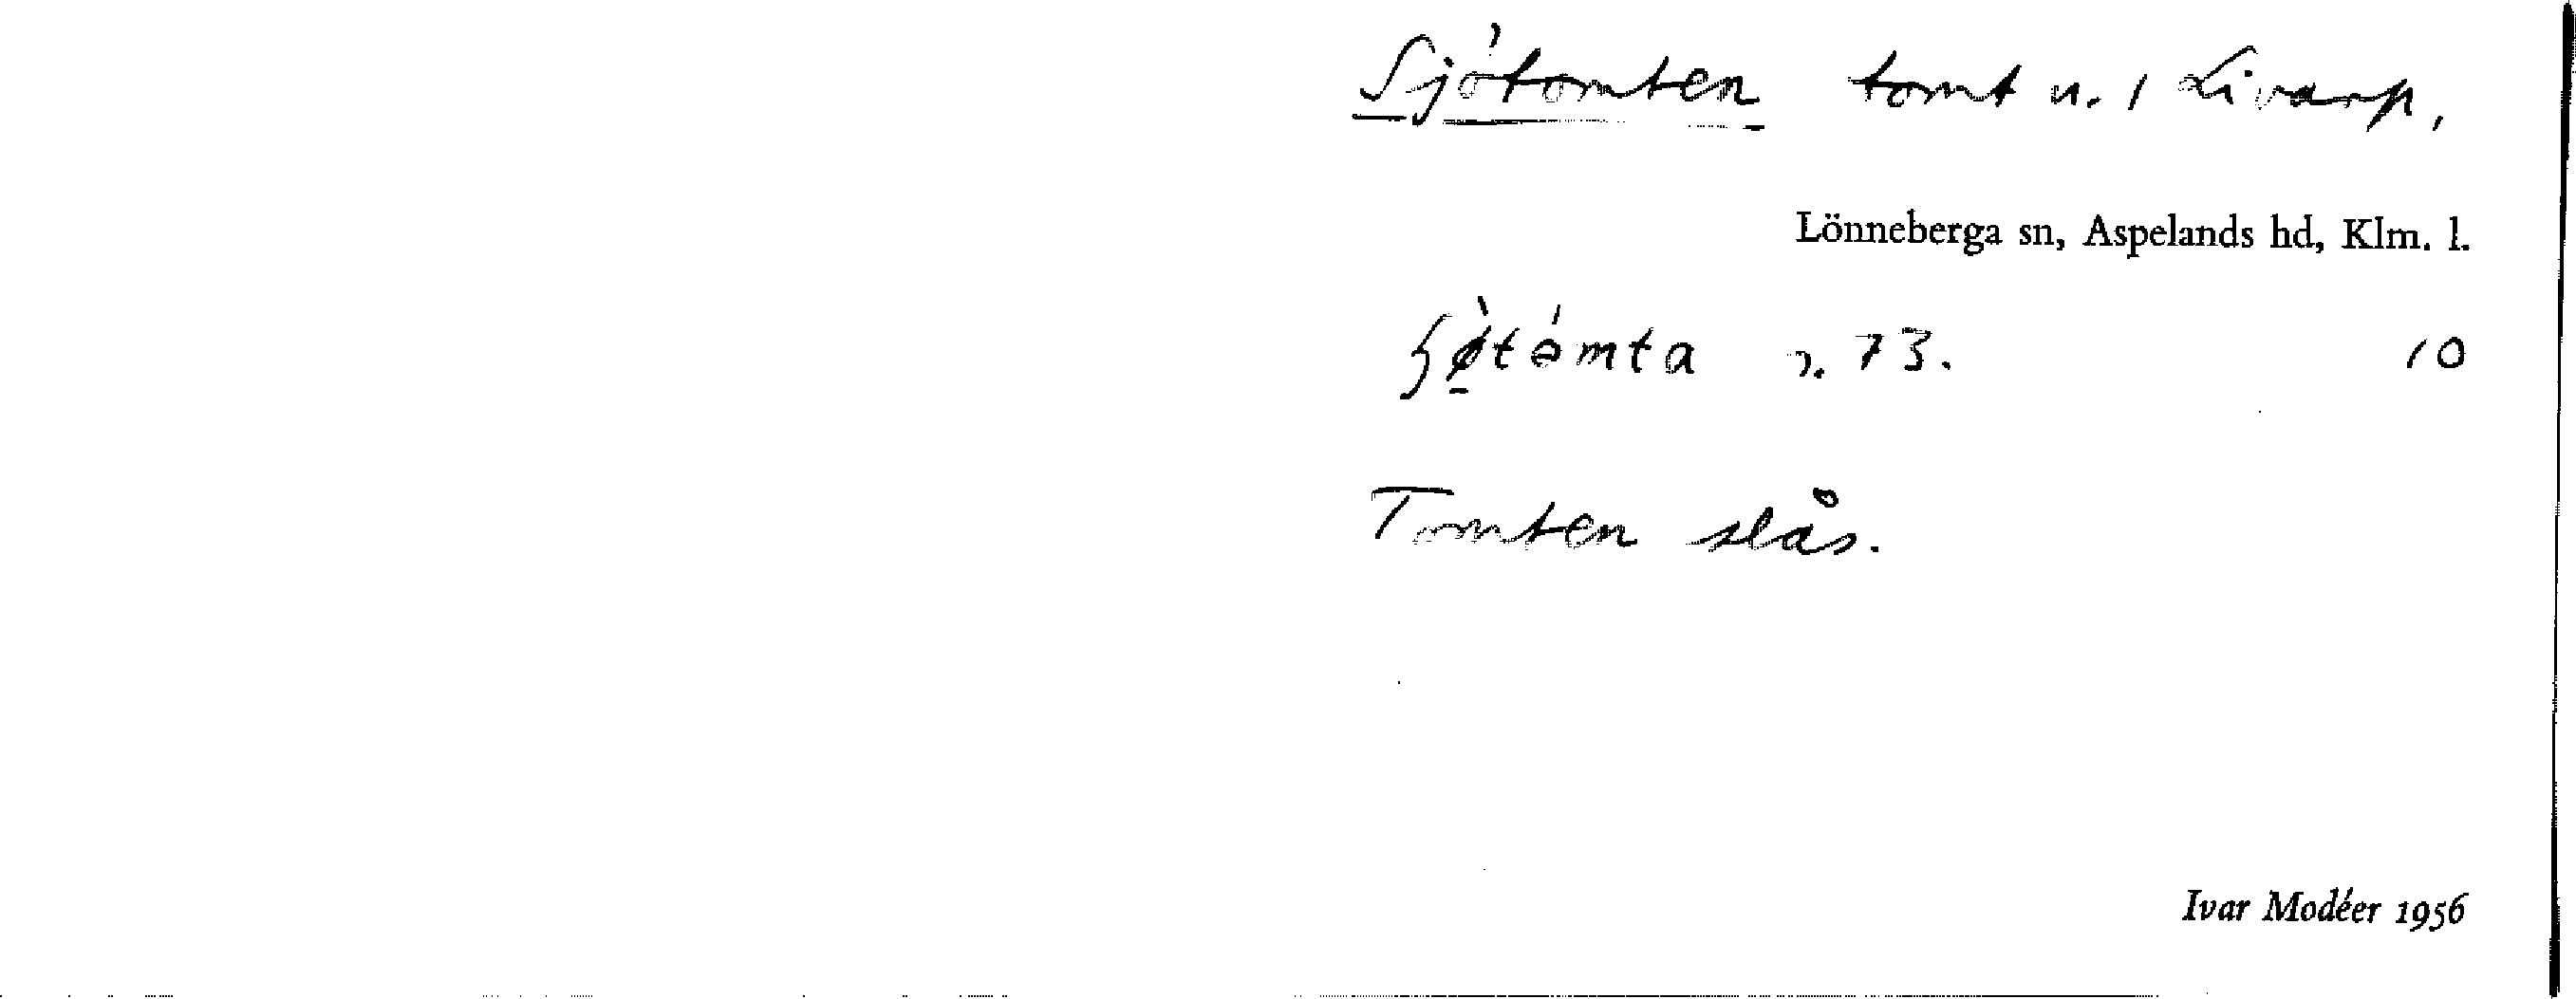 Sjötomten tomt u. 1 Livarp,
Lönneberga sn, Aspelands hd, Klm. l.
ɧø̀tómta 2. 73. 10
Tomten slås.
Ivar Modéer 1956